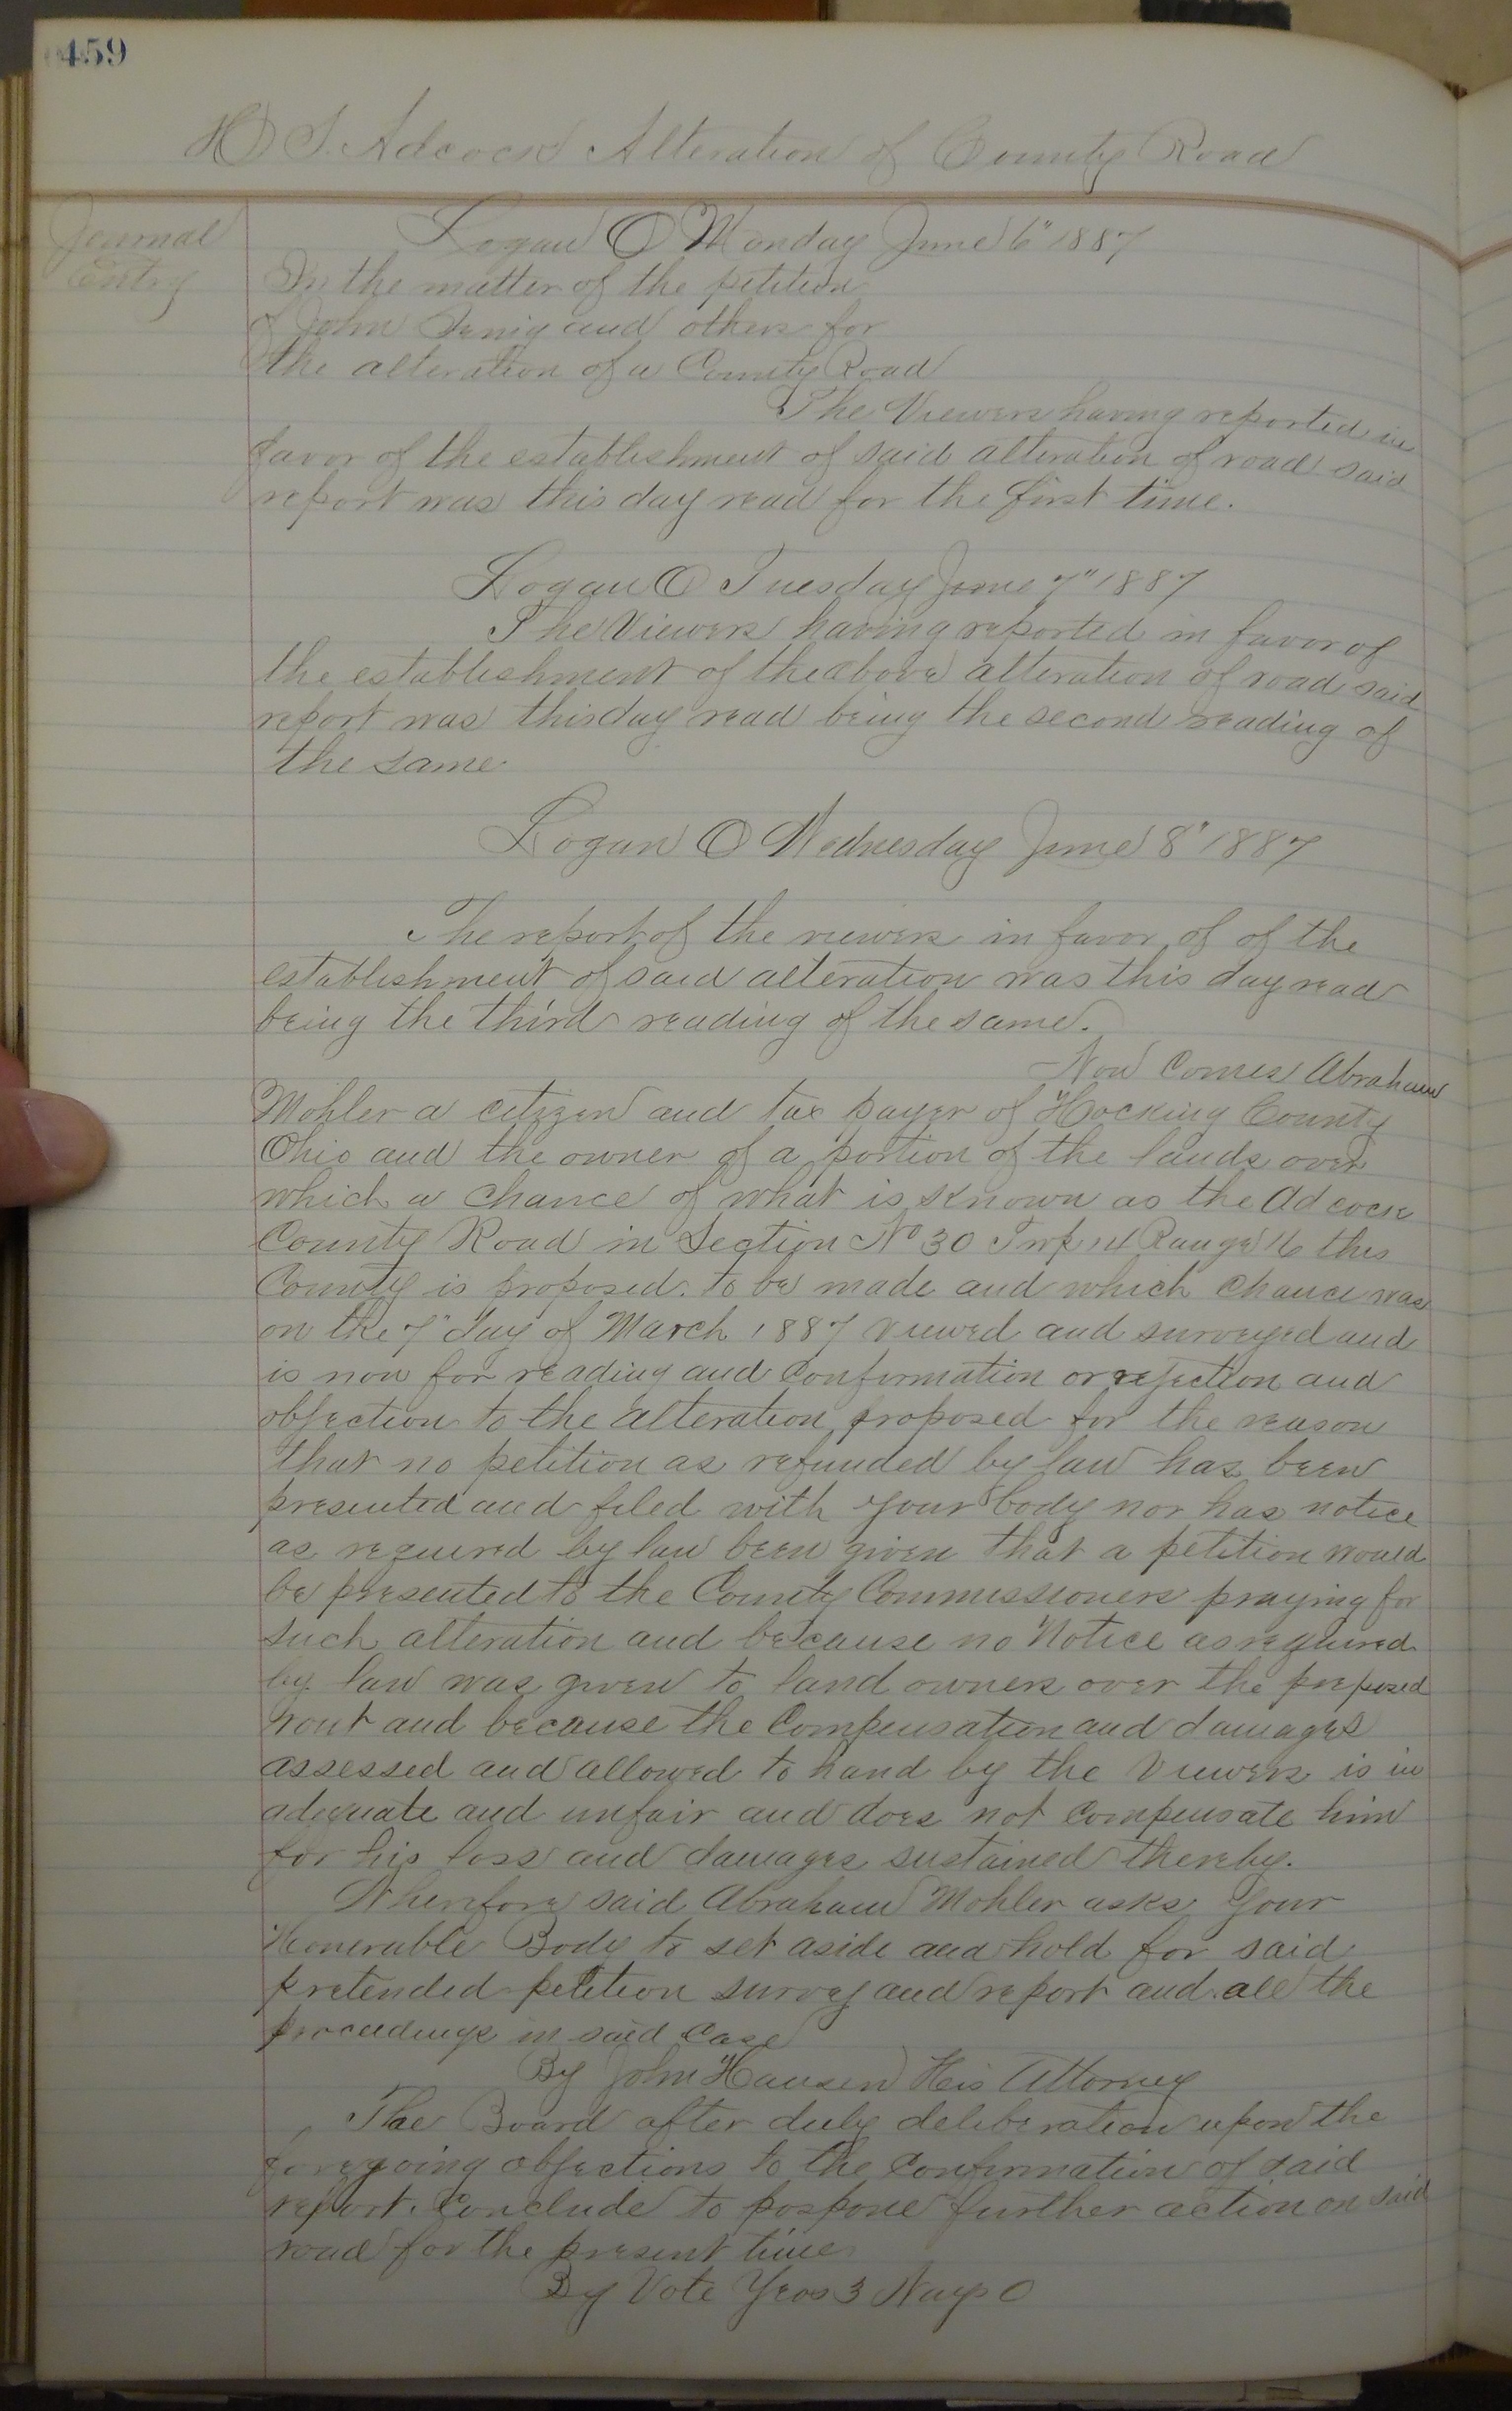 459
H S. Adcock Alteration of County Road
Journal
Entry
Logan O Monday June 6" 1887
In the matter of the petition
of John and others for
the alteration of a County Road
The Viewers having reported in
favor of the establishment of said alteration of road said
report was this day read for the first time.
Logan O Tuesday June 7" 1887
The Viewers having reported in favor of
the establishment of the above alteration of road said
report was this day read being the second reading of
the same
Logan O Wednesday June 8" 1887
The report of the viewers in favor of of the
establishment of said alteration was this day read
being the third reading of the same.
Now Comes Abraham
Mohler a citizen and tax payer of Hocking County
Ohio and the owner of a portion of the lands over
which a Chance of what is known as the Adcock
County Road in Section No 30 Twp 14 Range 16 this
County is proposed to be made and which Chance was
on the 7" day of March 1887 viewed and surveyed and
is now for reading and Confirmation or rejection and
objection to the alteration proposed for the reason
that no petition as refunded by law has been
presented and filed with your body nor has notice
as required by law been given that a petition would
be presented to the County Commissioners praying for
such alteration and because no Notice as required
by law was given to land owners over the proposed
rout and because the Compensation and damages
assessed and allowed to hand by the Viewers is in
adequate and unfair and does not Compensate him
for his loss and damages sustained thereby.
Wherefore said Abraham Mohler asks your
Honerable Body to set aside and hold for said
pretended petition survey and report and all the
proceedings in said Case
By John Hansen His Attorney
The Board after duly deliberation upon the
foregoing objections to the Confirmation of said
report. Conclude to pospone further action on said
road for the present time
By Vote Yeas 3 Nays 0